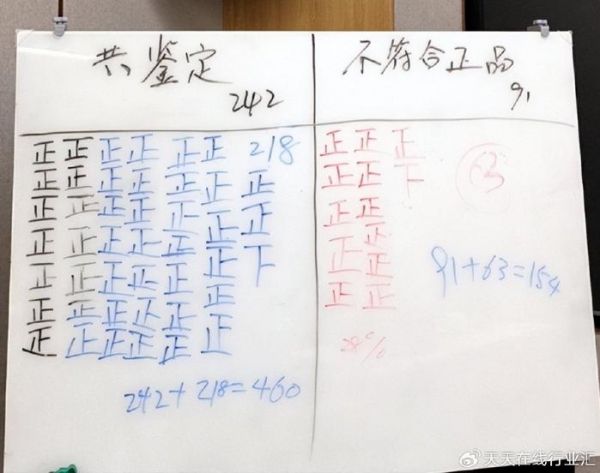 共鉴定
242
正正正正正正 218
正正正正正正正
正正正正正正正
正正正正正正下
正正正正正正
正正正正正
正正正正正正
242+218=460
不符合正品
91
正正正
正正下
正正
正
正正
正正
63
91+63=154
@天天在线行业汇